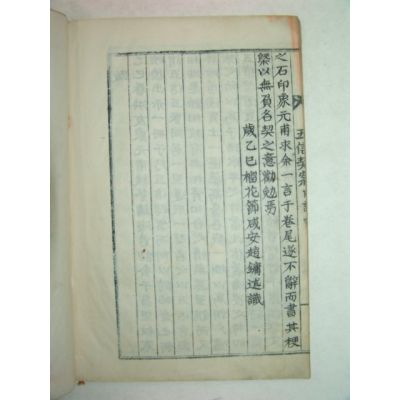 之石印衆元甫求余一言于卷尾遂不辭而書其梗
槩以無負名契之意勸勉焉
歲乙巳榴花節咸安趙鏞述識